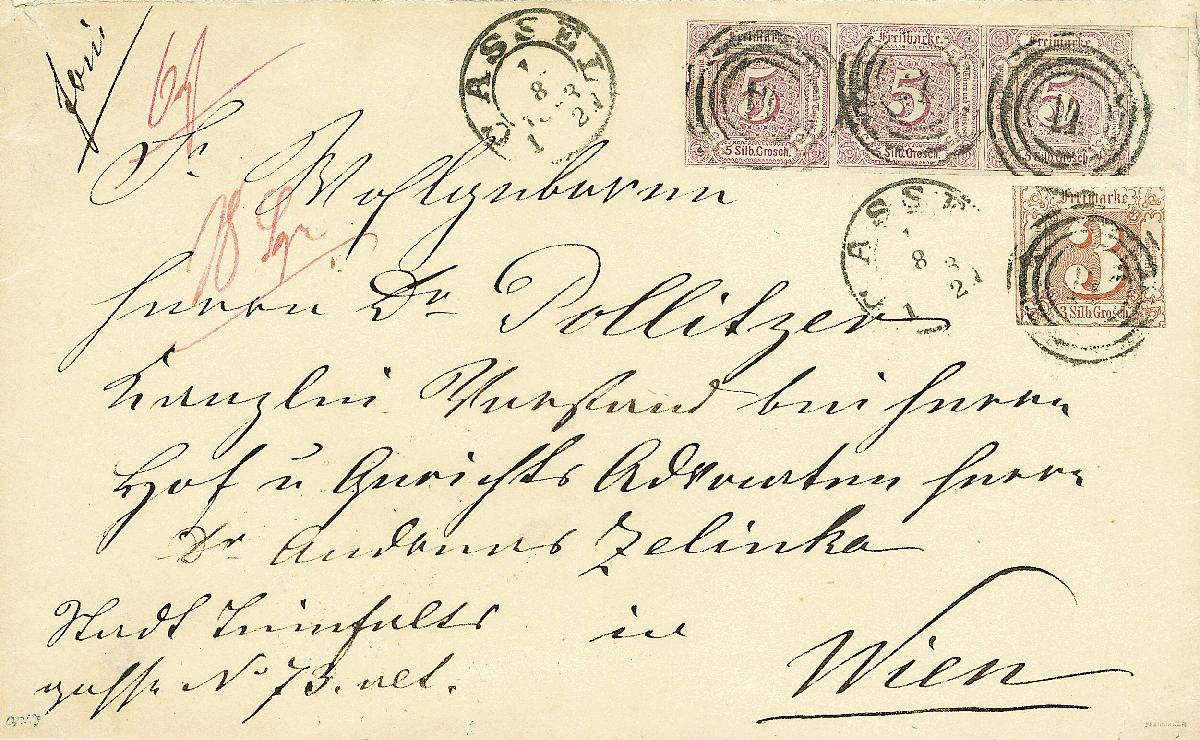 CASSEL
8 3
1 2
Freimarke Freimarke Freimarke
5 5 5
5 Silb.Grosch. 5 Silb.Grosch. 5 Silb.Grosch.
CASSEL
8 3
1 2
Freimarke
3
3 Silb Grosch.
18 Sgr
Sr Wohlgeboren
Herrn Dr Pollitzer
Kanzlei Vorstand bei Herrn
Hof u Gerichts Advocaten Herrn
Dr Andreas Zelinka
Stadt Teinfalts
gasse No 73.
in
Wien